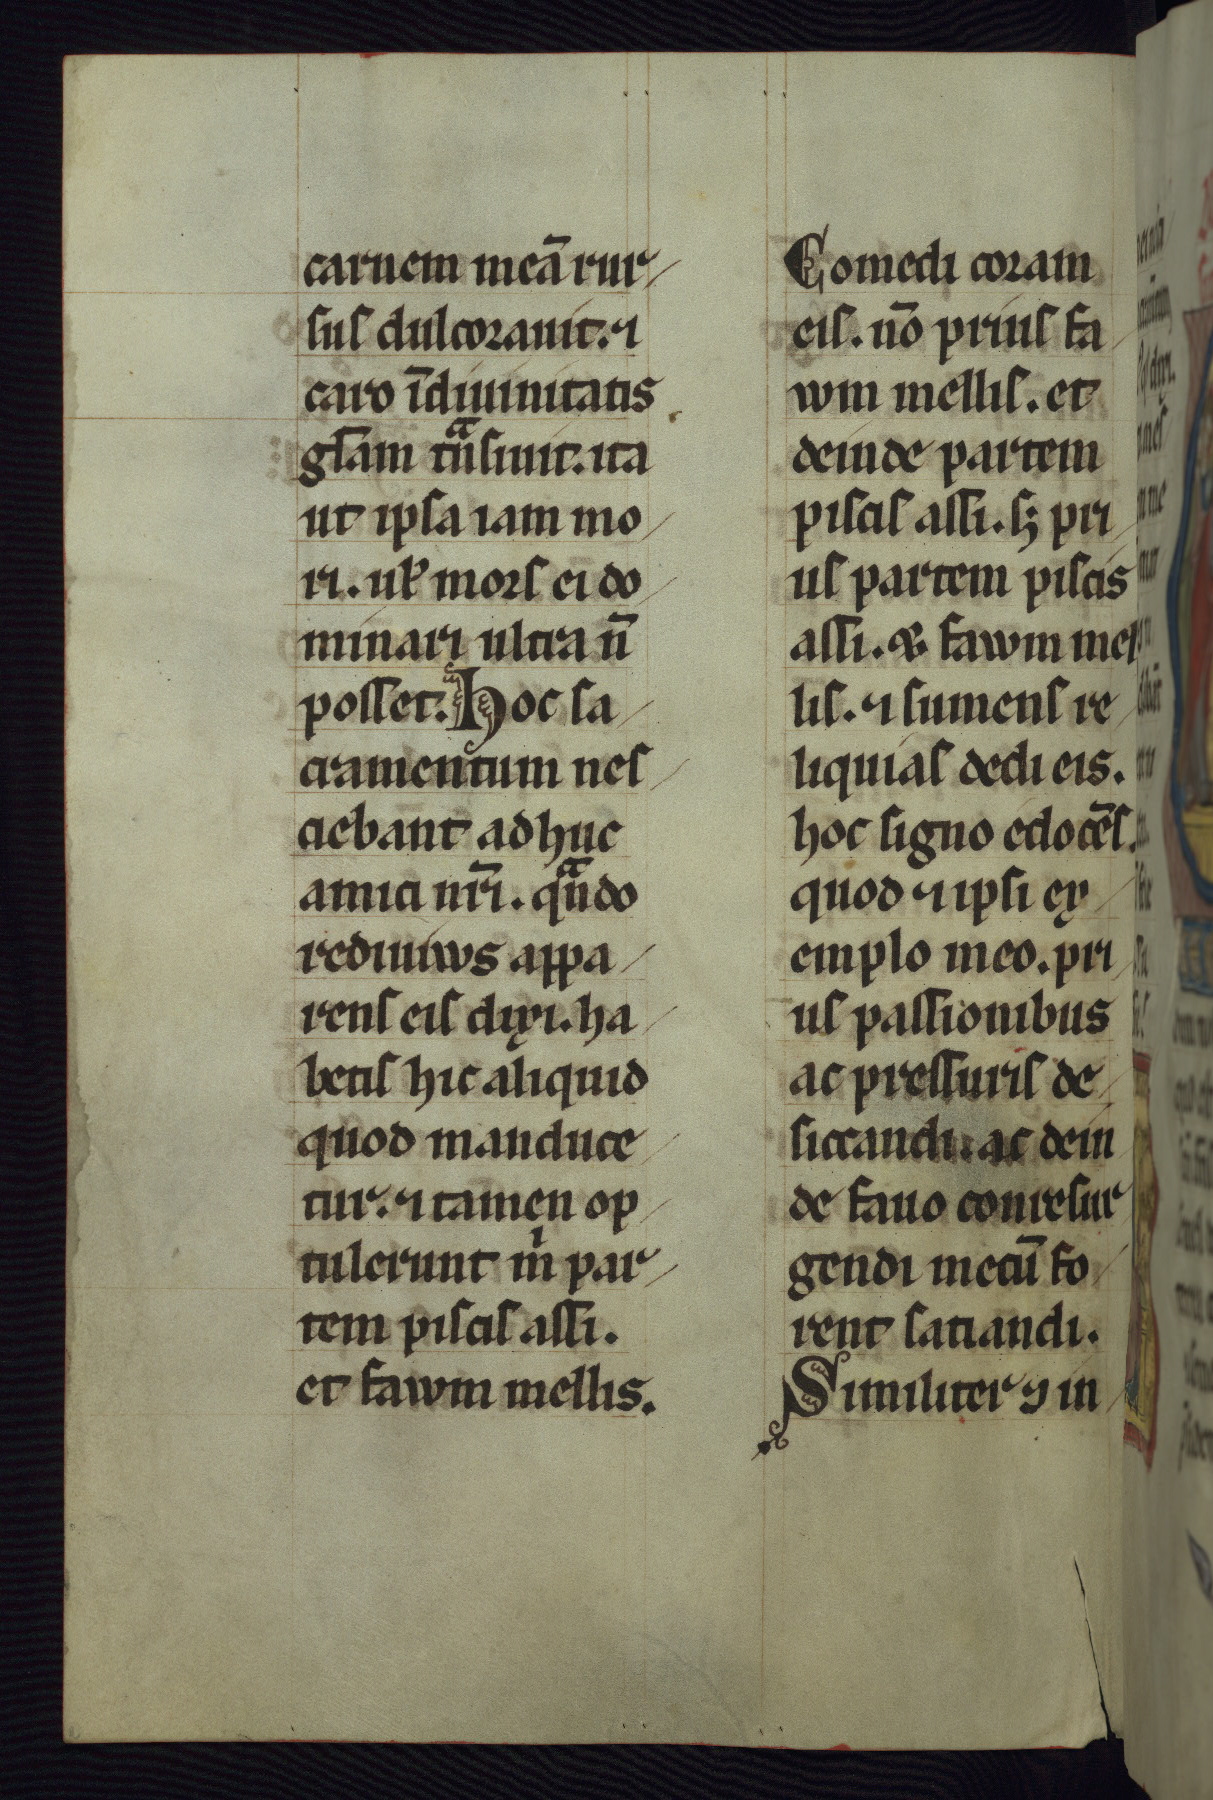 carnem meā rur
sus dulcorauit. ⁊
caro ī diuinitatis
gl̄am tͣnsiuit. ita
ut ipsa iam mo
ri. uł mors ei do
minari ultra n̄
posset. Hoc sa
cramentum nes
ciebant adhuc
amici nr̄i. qͣndo
rediuiuus appa
rens eis dixi. ha
betis hic aliquid
quod manduce
tur. ⁊ tamen op
tulerunt m̍ par
tem piscis assi.
et fauum mellis.
Comedi coram
eis. nō prius fa
uum mellis. et
deinde partem
piscis assi. sꝫ pri
us partem piscis
assi. & fauum mel
lis. ⁊ sumens re
liquias dedi eis.
hoc signo edocēs.
quod ⁊ ipsi ex
emplo meo. pri
us passionibus
ac pressuris de
siccandi. ac dein
de fauo conresur
gendi mecū fo
rent satiandi.
Similiter ꝯ in